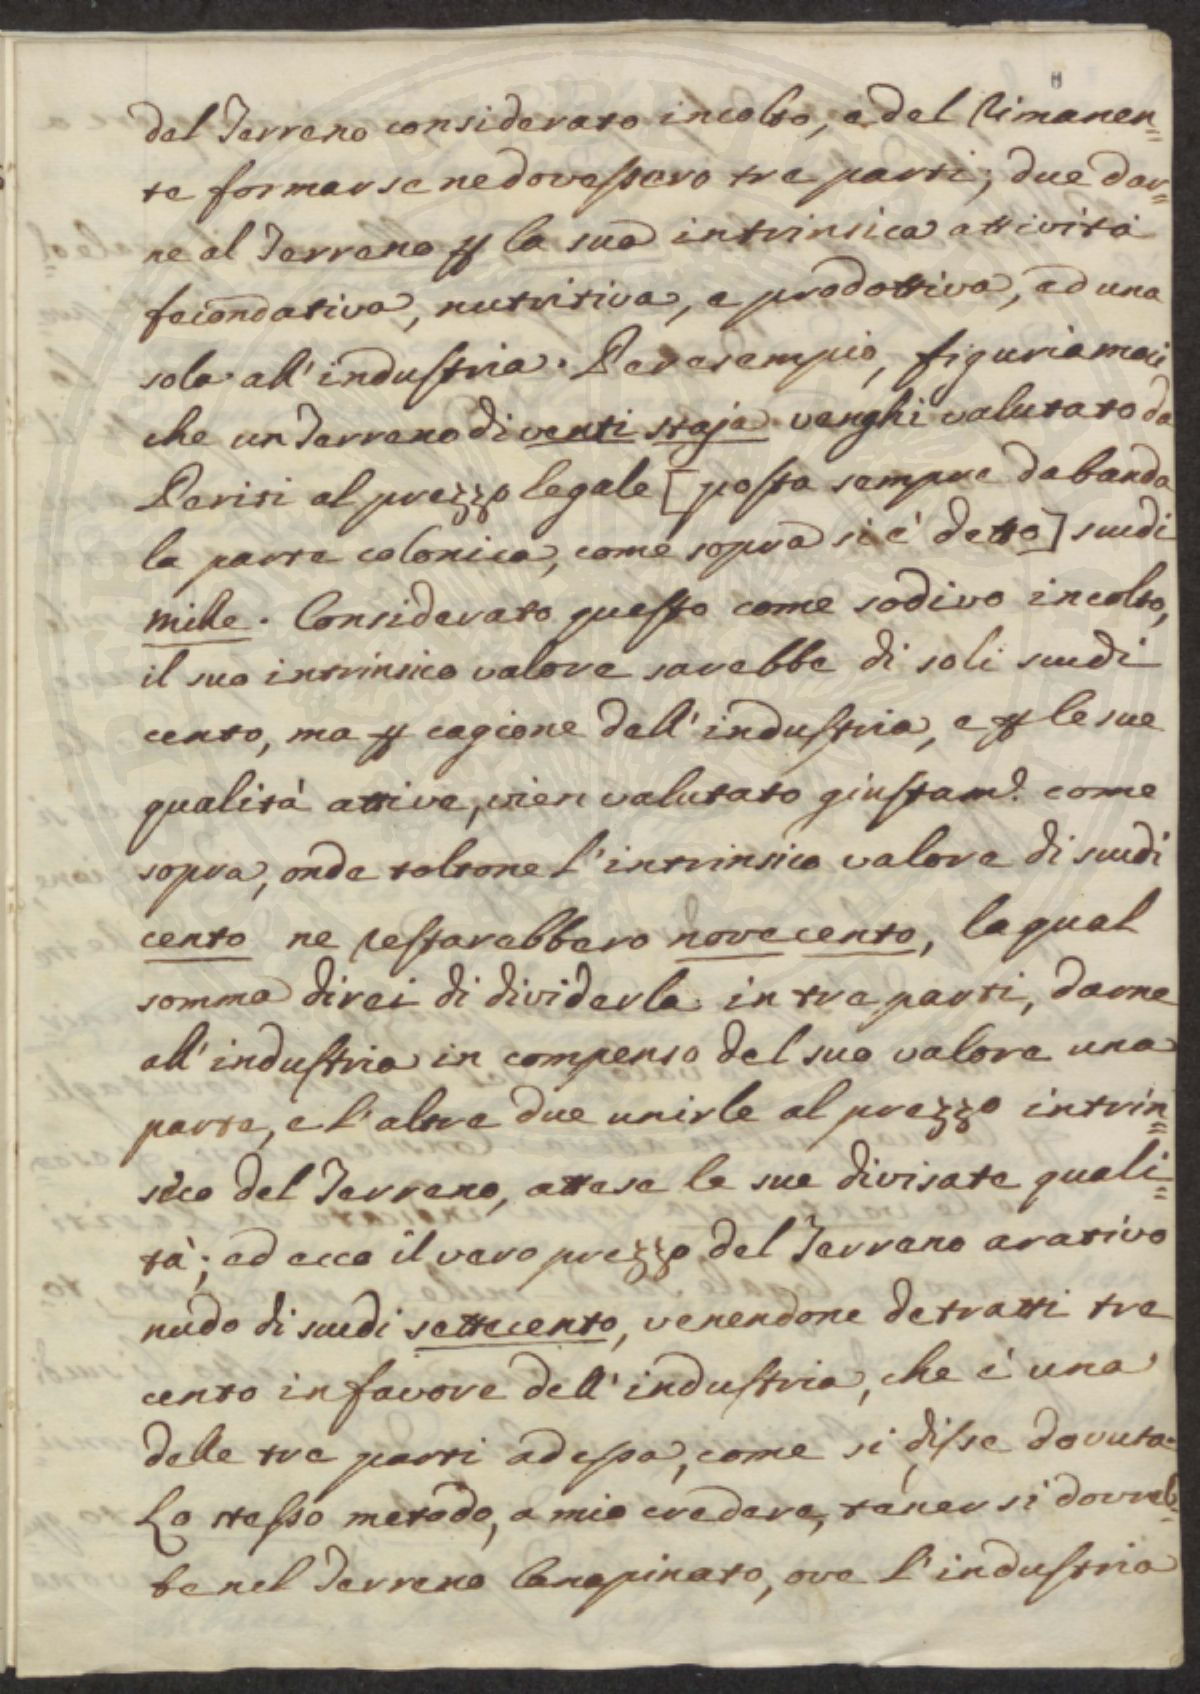 del Terreno considerato incolto, e del Rimanen=
te formarsene dovessero tre parti; due dar=
ne al Terreno p la sua intrinsica attività
fecondativa, nutritiva, e prodottiva, ed una
sola all' industria. Per esempio, figuriamoci
che un Terreno di venti staja venghi valutato da
Periti al prezzo legale [posta sempre da banda
la parte colonica, come sopra si è detto] scudi
mille. Considerato questo come sodivo incolto,
il suo intrinsico valore sarebbe di soli scudi
cento, ma p cagione dell' industria, e p le sue
qualità attive, vien valutato giustam.e come
sopra, onde toltone l' intrinsico valore di scudi
cento ne restarebbero novecento, la qual
somma direi di dividerla in tre parti, darne
all' industria in compenso del suo valore una
parte, e l' altre due unirle al prezzo intrin=
sico del Terreno, attese le sue divisate quali=
tà; ed ecco il vero prezzo del Terreno arativo
nudo di scudi settecento, venendone detratti tre
cento in favore dell' industria, che è una
delle tre parti ad essa, come si disse dovuta.
Lo stesso metodo, a mio credere, tener si dovreb=
be nel Terreno Canapinato, ove l' industria